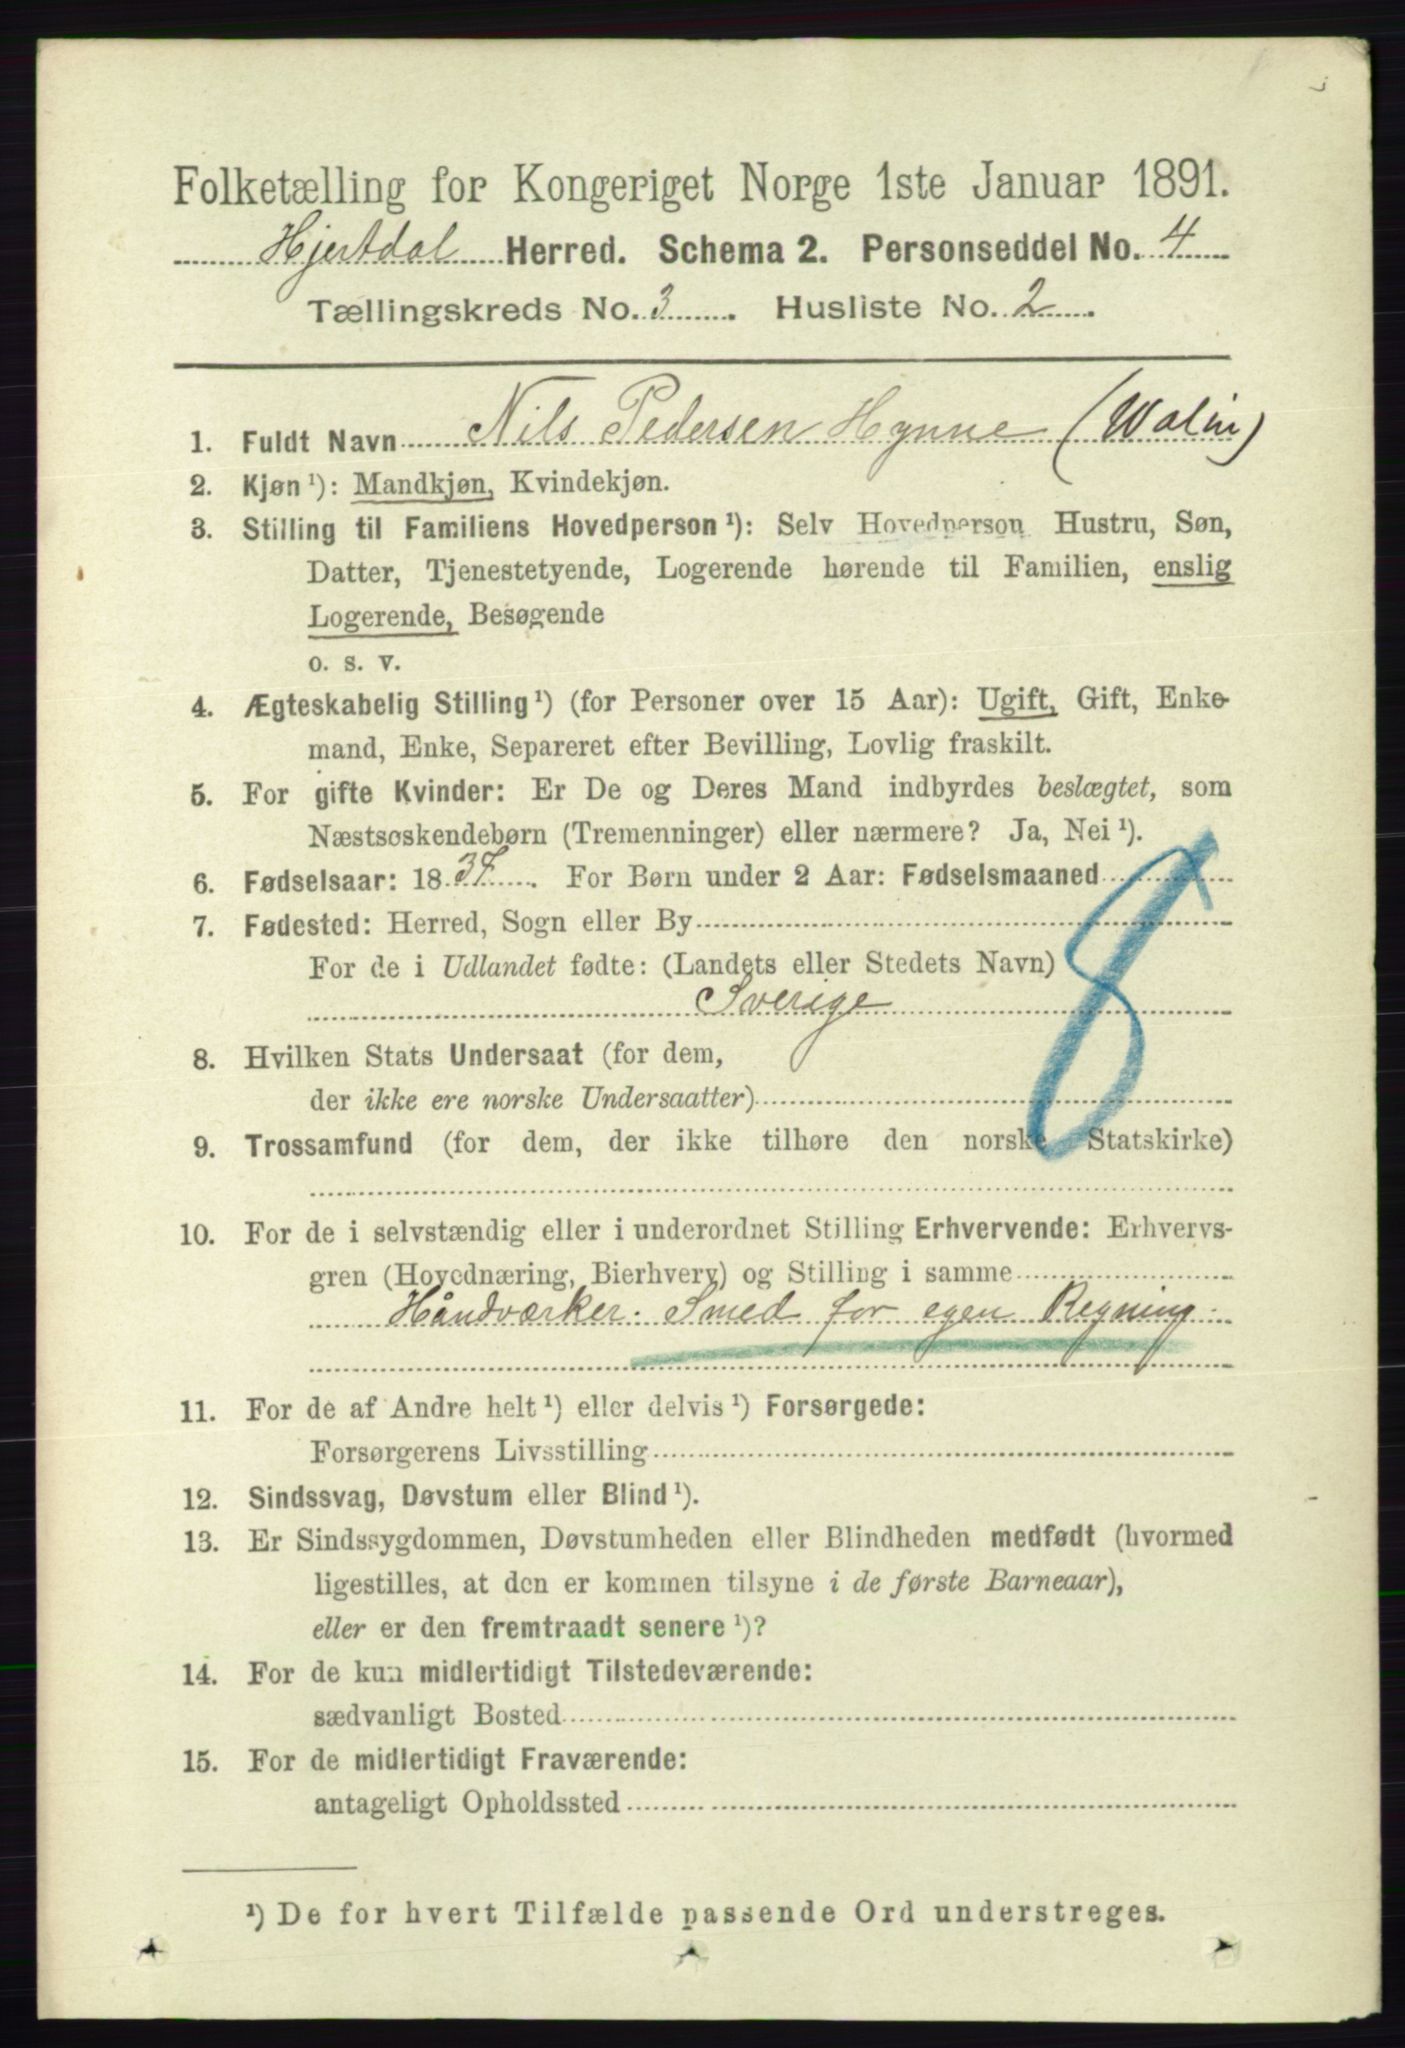 Folketælling for Kongeriget Norge 1ste Januar 1891.
Hjertdal Herred. Schema 2. Personseddel No. 4
Tællingskreds No. 3. Husliste No. 2.
1. Fuldt Navn Nils Pedersen Hynne (Walin)
2. Kjøn ¹): Mandkjøn, Kvindekjøn.
3. Stilling til Familiens Hovedperson ¹): Selv Hovedperson Hustru, Søn,
Datter, Tjenestetyende, Logerende hørende til Familien, enslig
Logerende, Besøgende
o. s. v.
4. Ægteskabelig Stilling ¹) (for Personer over 15 Aar): Ugift, Gift, Enke-
mand, Enke, Separeret efter Bevilling, Lovlig fraskilt.
5. For gifte Kvinder: Er De og Deres Mand indbyrdes beslægtet, som
Næstsøskendebørn (Tremenninger) eller nærmere? Ja, Nei ¹).
6. Fødselsaar: 1837. For Børn under 2 Aar: Fødselsmaaned
7. Fødested: Herred, Sogn eller By
For de i Udlandet fødte: (Landets eller Stedets Navn)
Sverige
8
8. Hvilken Stats Undersaat (for dem,
der ikke ere norske Undersaatter)
9. Trossamfund (for dem, der ikke tilhøre den norske Statskirke)
10. For de i selvstændig eller i underordnet Stilling Erhvervende: Erhvervs-
gren (Hovednæring, Bierhverv) og Stilling i samme
Håndværker. Smed for egen Regning.
11. For de af Andre helt ¹) eller delvis ¹) Forsørgede:
Forsørgerens Livsstilling
12. Sindssvag, Døvstum eller Blind ¹).
13. Er Sindssygdommen, Døvstumheden eller Blindheden medfødt (hvormed
ligestilles, at den er kommen tilsyne i de første Barneaar),
eller er den fremtraadt senere ¹)?
14. For de kun midlertidigt Tilstedeværende:
sædvanligt Bosted
15. For de midlertidigt Fraværende:
antageligt Opholdssted
¹) De for hvert Tilfælde passende Ord understreges.